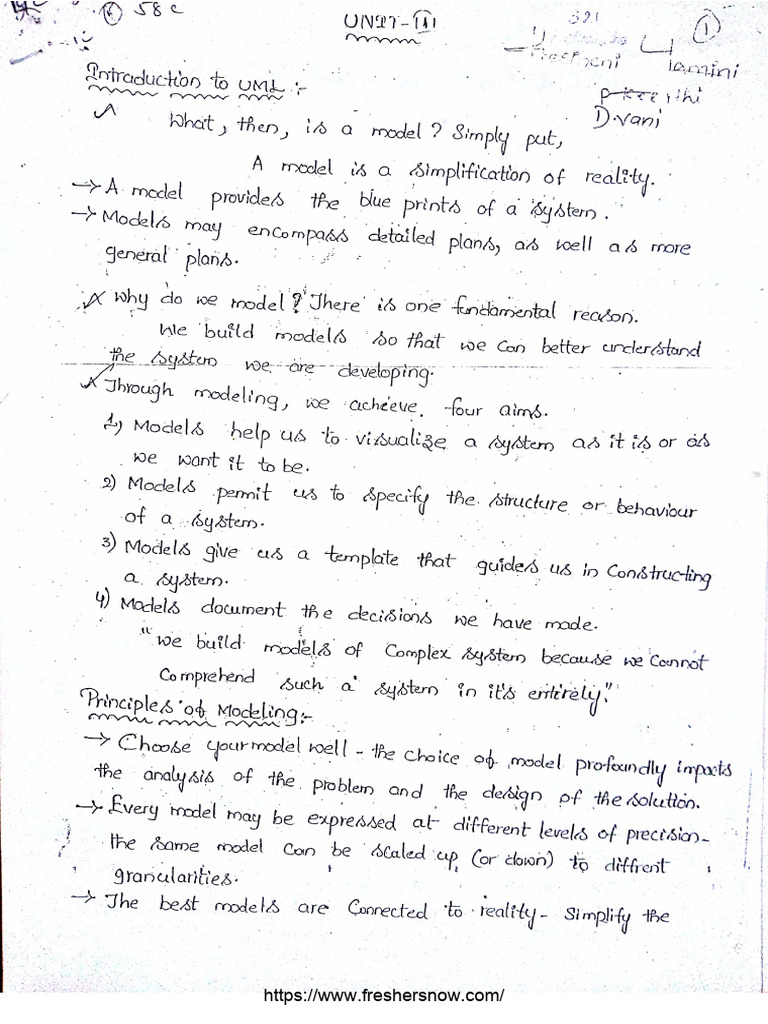 58 c
UNIT-III
321
1
Yamini
Preethi
D.vani
Introduction to UML :-
What, then, is a model? Simply put,
A model is a simplification of reality.
→ A model provides the blue prints of a system.
→ Models may encompass detailed plans, as well as more
general plans.
Why do we model? There is one fundamental reason.
We build models so that we can better understand
the system we are developing.
Through modeling, we achieve four aims.
1) Models help us to visualize a system as it is or as
we want it to be.
2) Models permit us to specify the structure or behaviour
of a system.
3) Models give us a template that guides us in Constructing
a system.
4) Models document the decisions we have made.
"we build models of Complex system because we Cannot
Comprehend such a system in it's entirely."
Principles of Modeling:-
→ Choose your model well - the choice of model profoundly impacts
the analysis of the problem and the design of the solution.
→ Every model may be expressed at different levels of precision-
the same model can be scaled up (or down) to diffrent
granularities.
→ The best models are Connected to reality - Simplify the
https://www.freshersnow.com/